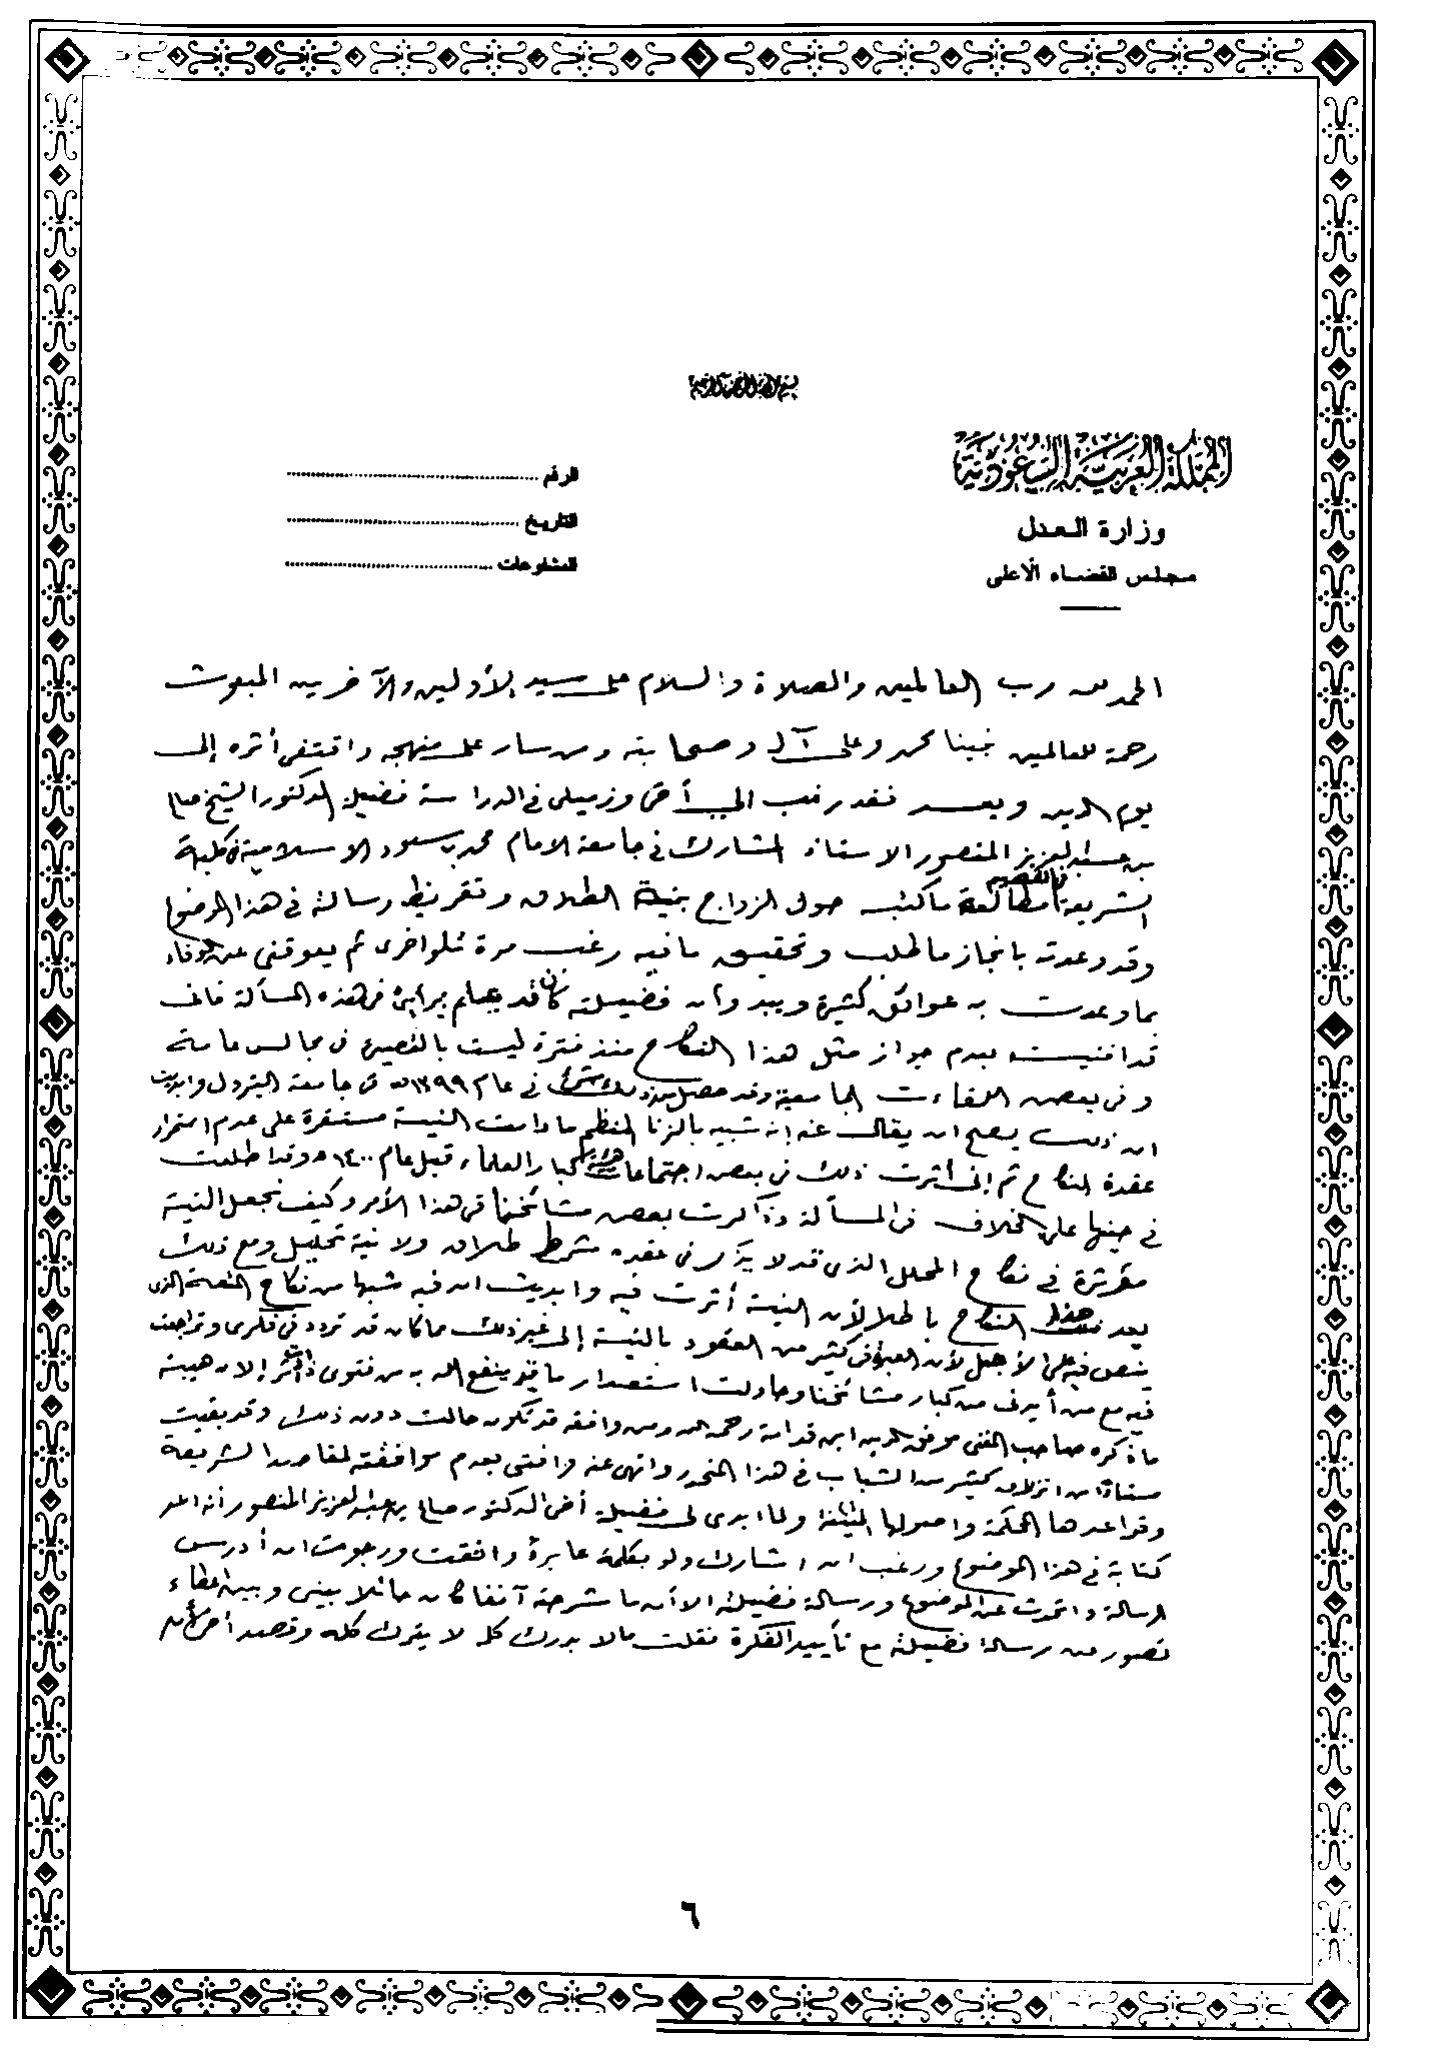 بسم الله الرحمن الرحيم
المملكة العربية السعودية
وزارة العدل
مجلس القضاء الأعلى
الرقم
التاريخ
المشفوعات
الحمد لله رب العالمين والصلاة والسلام على سيد الأولين والآخرين المبعوث
رحمة للعالمين نبينا محمد وعلى آله وصحابته ومن سار على منهجه واقتفى أثره إلى
يوم الدين وبعد فقد رغب الي أخي وزميلي في الدراسة فضيلة الدكتور الشيخ صالح
بن عبدالعزيز المنصور الاستاذ المشارك في جامعة الامام محمد بن سعود الاسلامية في كلية
الشريعة بالقصيم مطالعة ما كتبه حول الزواج بنية الطلاق وتقريظ رسالة في هذا الموضوع
وقد وعدته بانجاز ما طلب وتحقيق ما فيه رغب مرة تلو اخرى ثم يعوقني عن الوفاء
بما وعدت به عوائق كثيرة ويبدو أن فضيلته كان قد علم برأيي في هذه المسألة فاني
قد افتيت بعدم جواز مثل هذا النكاح منذ فترة ليست بالقصيرة في مجالس عامة
وفي بعض اللقاءات الجامعية وقد حصل من ذلك شيء في عام ١٣٩٩هـ في جامعة البترول وابديت
ان ذلك يصح ان يقال عنه إنه شبيه بالزنا المنظم ما دامت النية مستقرة على عدم استمرار
عقدة النكاح ثم إني أثرت ذلك في بعض اجتماعات هيئة كبار العلماء قبل عام ١٤٠٠هـ وقد اطلعت
في حينها على الخلاف في المسألة وذاكرت بعض مشائخنا في هذا الأمر وكيف نجعل النية
مؤثرة في نكاح المحلل الذي قد لا يذكر في عقده شرط طلاق ولا نية تحليل ومع ذلك
يعد هذا النكاح باطلا لأن النية أثرت فيه وابديت ان فيه شبها من نكاح المتعة الذي
ينص فيه على الأجل لأن العبرة في كثير من العقود بالنية إلى غير ذلك مما كان قد تردد في فكري وتراجعت
فيه مع من أعرف من كبار مشائخنا وحاولت استصدار ما قد ينفع الله به من فتوى إلا ان هيبة
ما ذكره صاحب المغني موفق الدين ابن قدامة رحمه الله ومن وافقه قد تكون حالت دون ذلك وقد بقيت
مستاءً من انزلاق كثير من الشباب في هذا المنحدر وانهى عنه وافتي بعدم موافقته لمقاصد الشريعة
وقواعدها المحكمة واصولها ولما ابدى لي فضيلة أخي الدكتور صالح بن عبدالعزيز المنصور أنه اعد
كتابة في هذا الموضوع ورغب ان اشارك ولو بكلمة عابرة وافقت ورجوت ان أدرس
الرسالة واتحدث عن الموضوع ورسالة فضيلته الا أن ما شرحته آنفا كان حائلا بيني وبين اعطاء
تصور عن رسالة فضيلته مع تأييد الفكرة فقلت مالا يدرك كله لا يترك كله وقصد أخي أن
٦